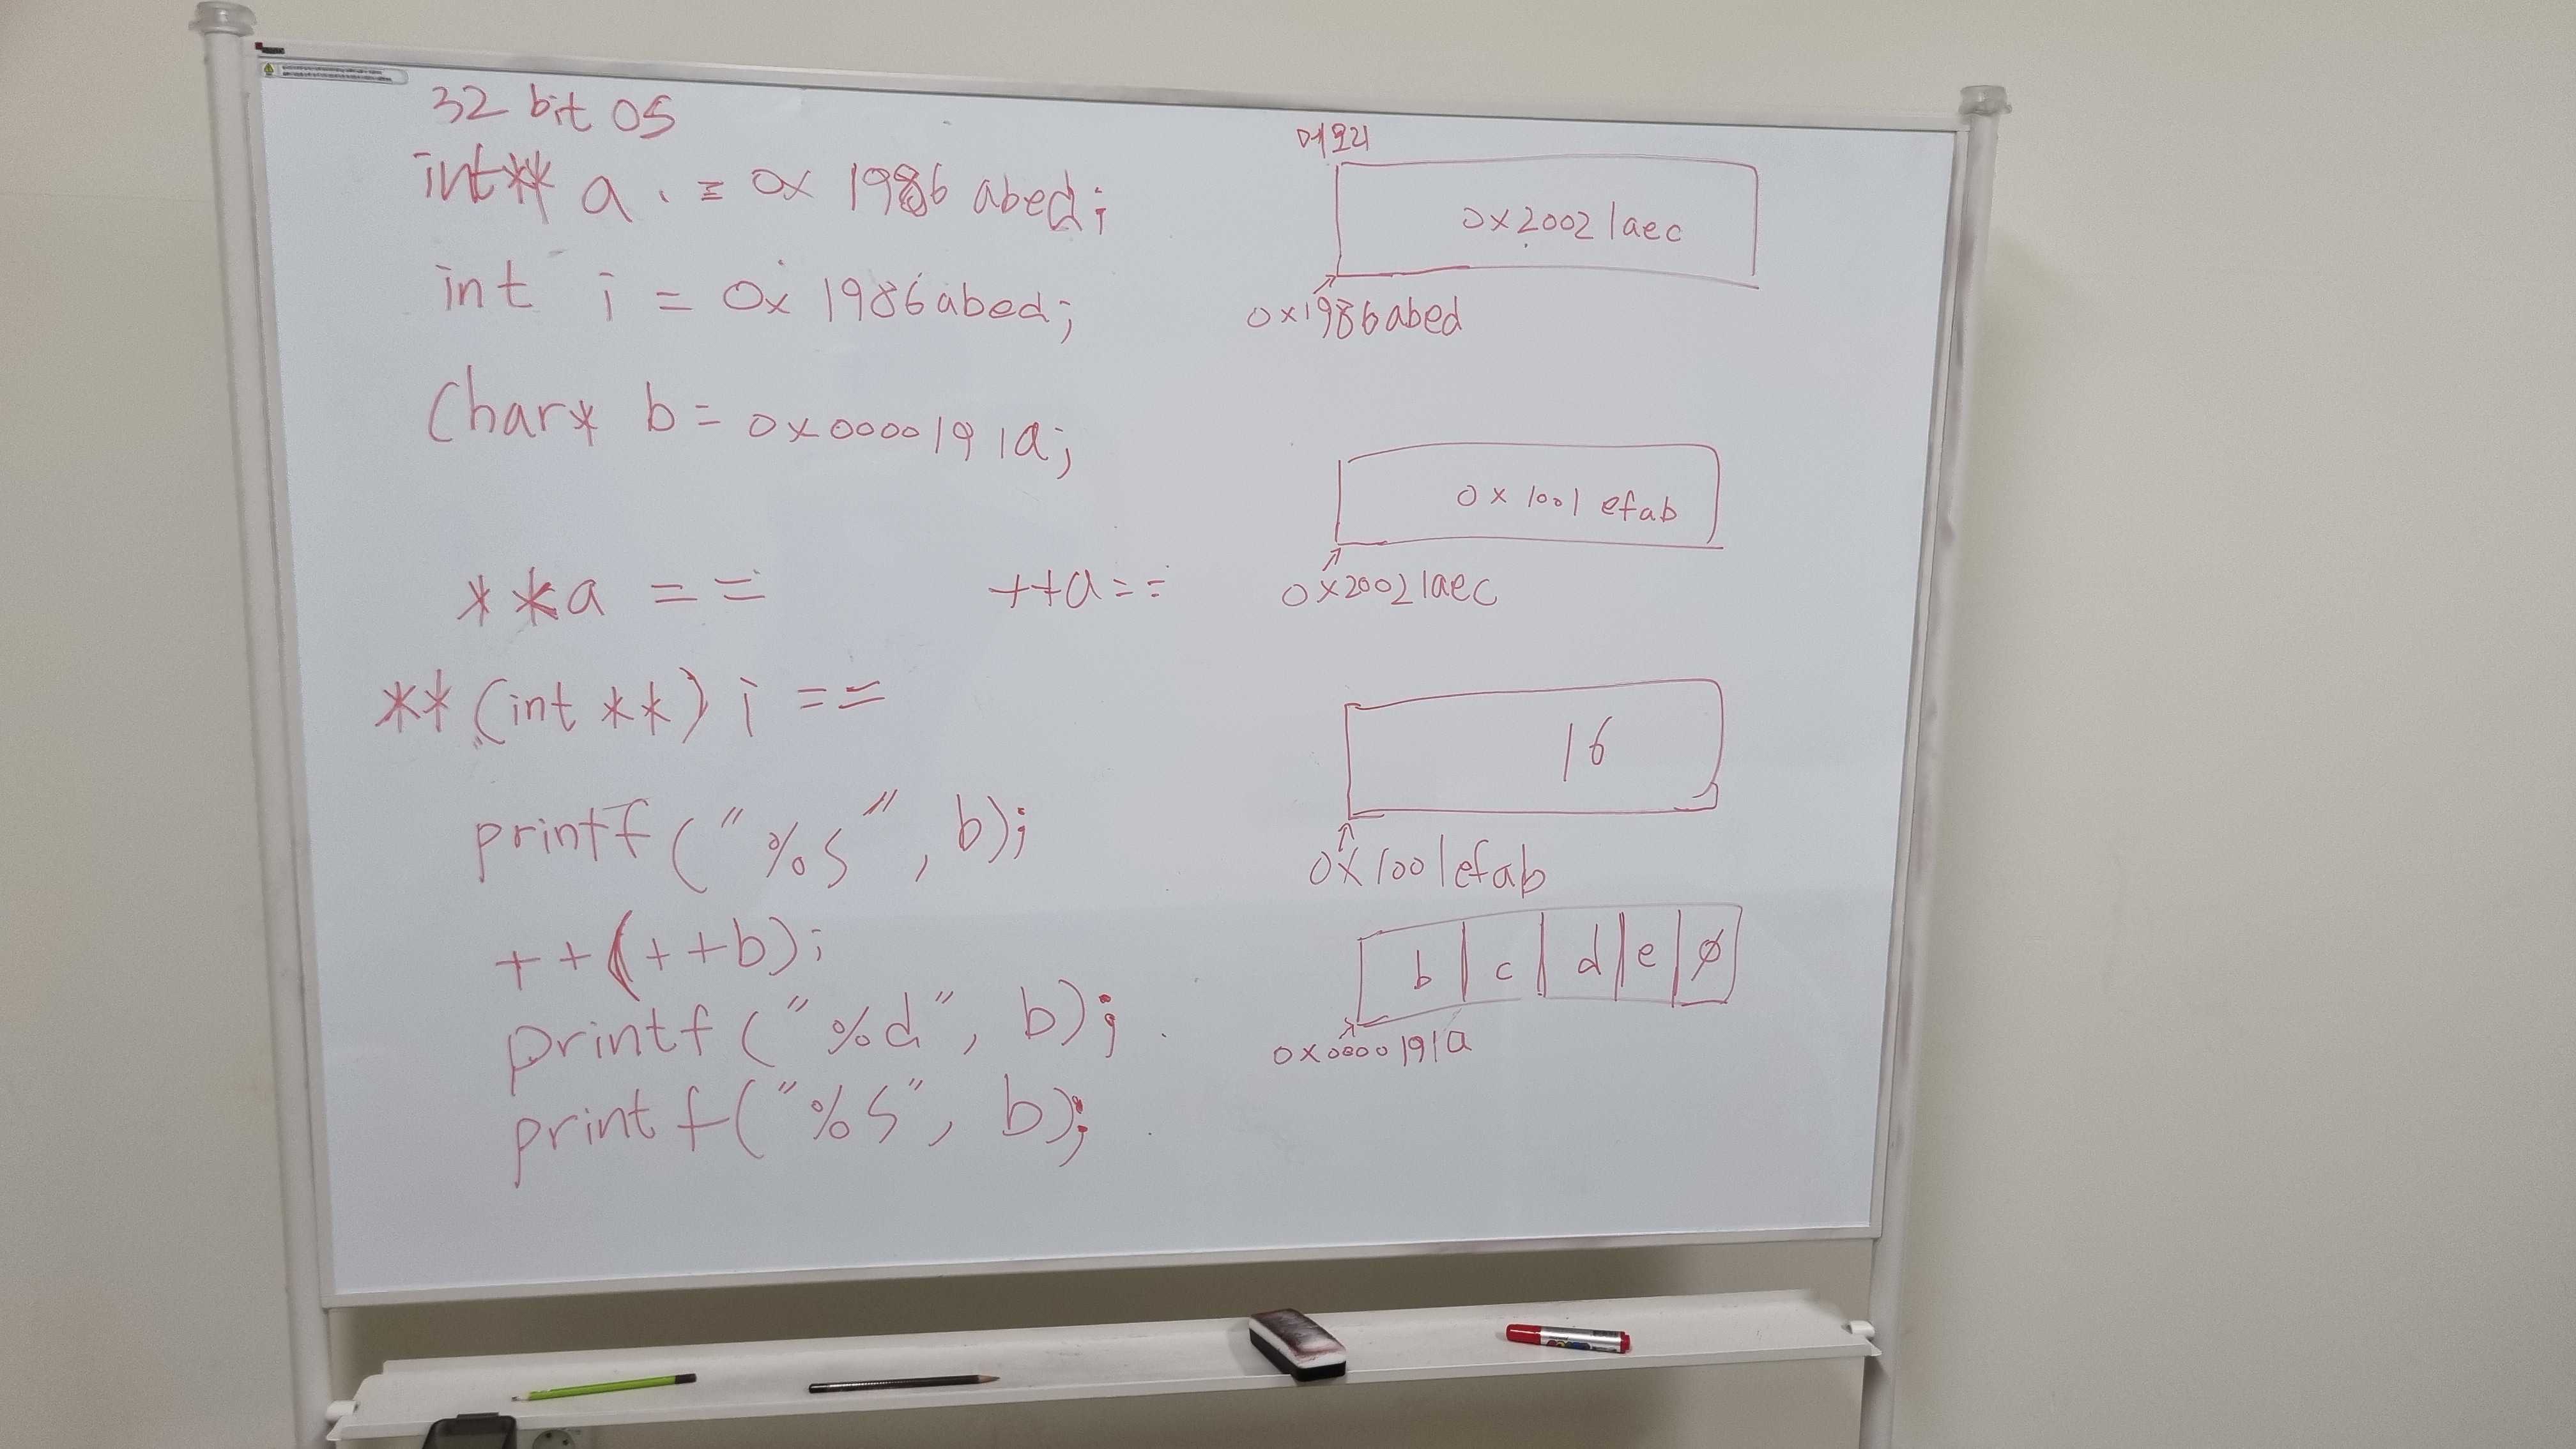 32 bit OS
int** a = 0x 1986 abed;
int i = 0x 1986abed;
Char* b = 0x0000191a;
**a == ++a==
**(int **) i ==
printf("%s", b);
++(++b);
printf("%d", b);
printf("%s", b);
주소
0x20021aec
0x1986abed
0x1001efab
0x20021aec
16
0x1001efab
b c d e ø
0x0000191a